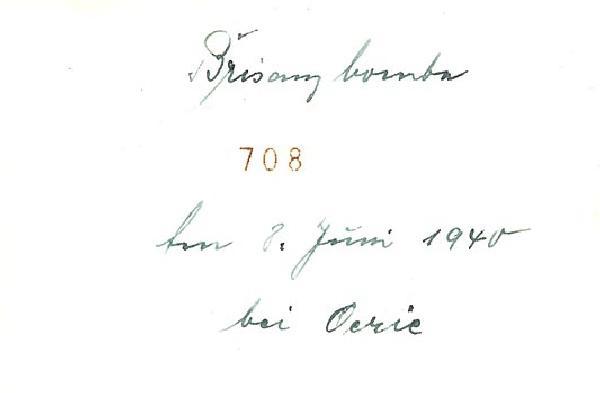 Brisanzbombe
708
Am 8. Juni 1940
bei Oerie